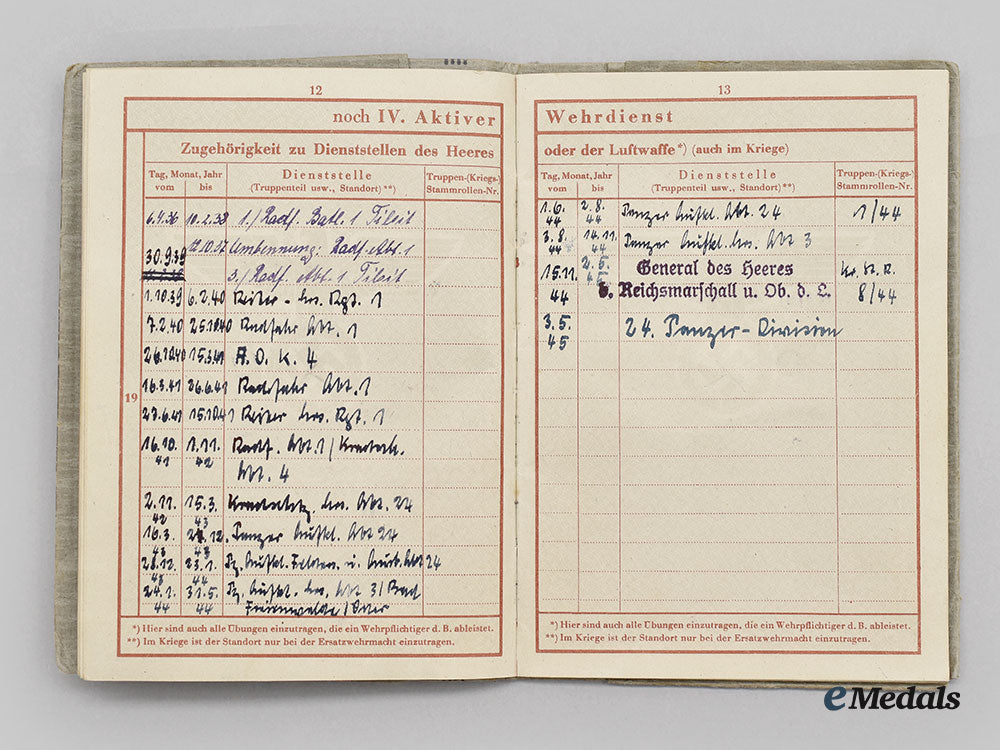 12
noch IV. Aktiver
Zugehörigkeit zu Dienststellen des Heeres
Tag, Monat, Jahr
vom bis
Dienststelle
(Truppenteil usw., Standort) **)
Truppen-(Kriegs-)
Stammrollen-Nr.
19
6.4.36 10.2.38 1./ Radf. Batl. 1 Tilsit
30.9.39 12.10.37 Umbennung: Radf. Abt. 1
3./ Radf. Abt. 1 Tilsit
1.10.39 6.2.40 Reiter-Ers. Rgt. 1
7.2.40 25.10.40 Radfahr Abt. 1
26.10.40 15.3.41 A.O.K. 4
16.3.41 26.6.41 Radfahr Abt. 1
27.6.41 15.10.41 Reiter Ers. Rgt. 1
16.10. 1.11. Radf. Abt. 1 /
41 42 Abt. 4
2.11. 15.3. Ers. Abt. 24
42 43
16.3. 27.12. Panzer Aufkl. Abt 24
43 43
28.12. 23.1. Pz. Aufkl. u. Ausb. Abt 24
43 44
24.1. 31.5. Pz. Aufkl. Ers. Abt 3 / Bad
44 44 Freienwalde / Oder
*) Hier sind auch alle Übungen einzutragen, die ein Wehrpflichtiger d. B. ableistet.
**) Im Kriege ist der Standort nur bei der Ersatzwehrmacht einzutragen.
13
Wehrdienst
oder der Luftwaffe *) (auch im Kriege)
Tag, Monat, Jahr
vom bis
Dienststelle
(Truppenteil usw., Standort) **)
Truppen-(Kriegs-)
Stammrollen-Nr.
1.6. 2.8. Panzer Aufkl. Abt. 24 1/44
44 44
3.8. 14.11. Panzer Aufkl. Ers. Abt 3
44 44
15.11. 2.5. General des Heeres Kr. St. R.
44 45 b. Reichsmarschall u. Ob. d. L. 8/44
3.5. 24. Panzer-Division
45
*) Hier sind auch alle Übungen einzutragen, die ein Wehrpflichtiger d. B. ableistet.
**) Im Kriege ist der Standort nur bei der Ersatzwehrmacht einzutragen.
eMedals